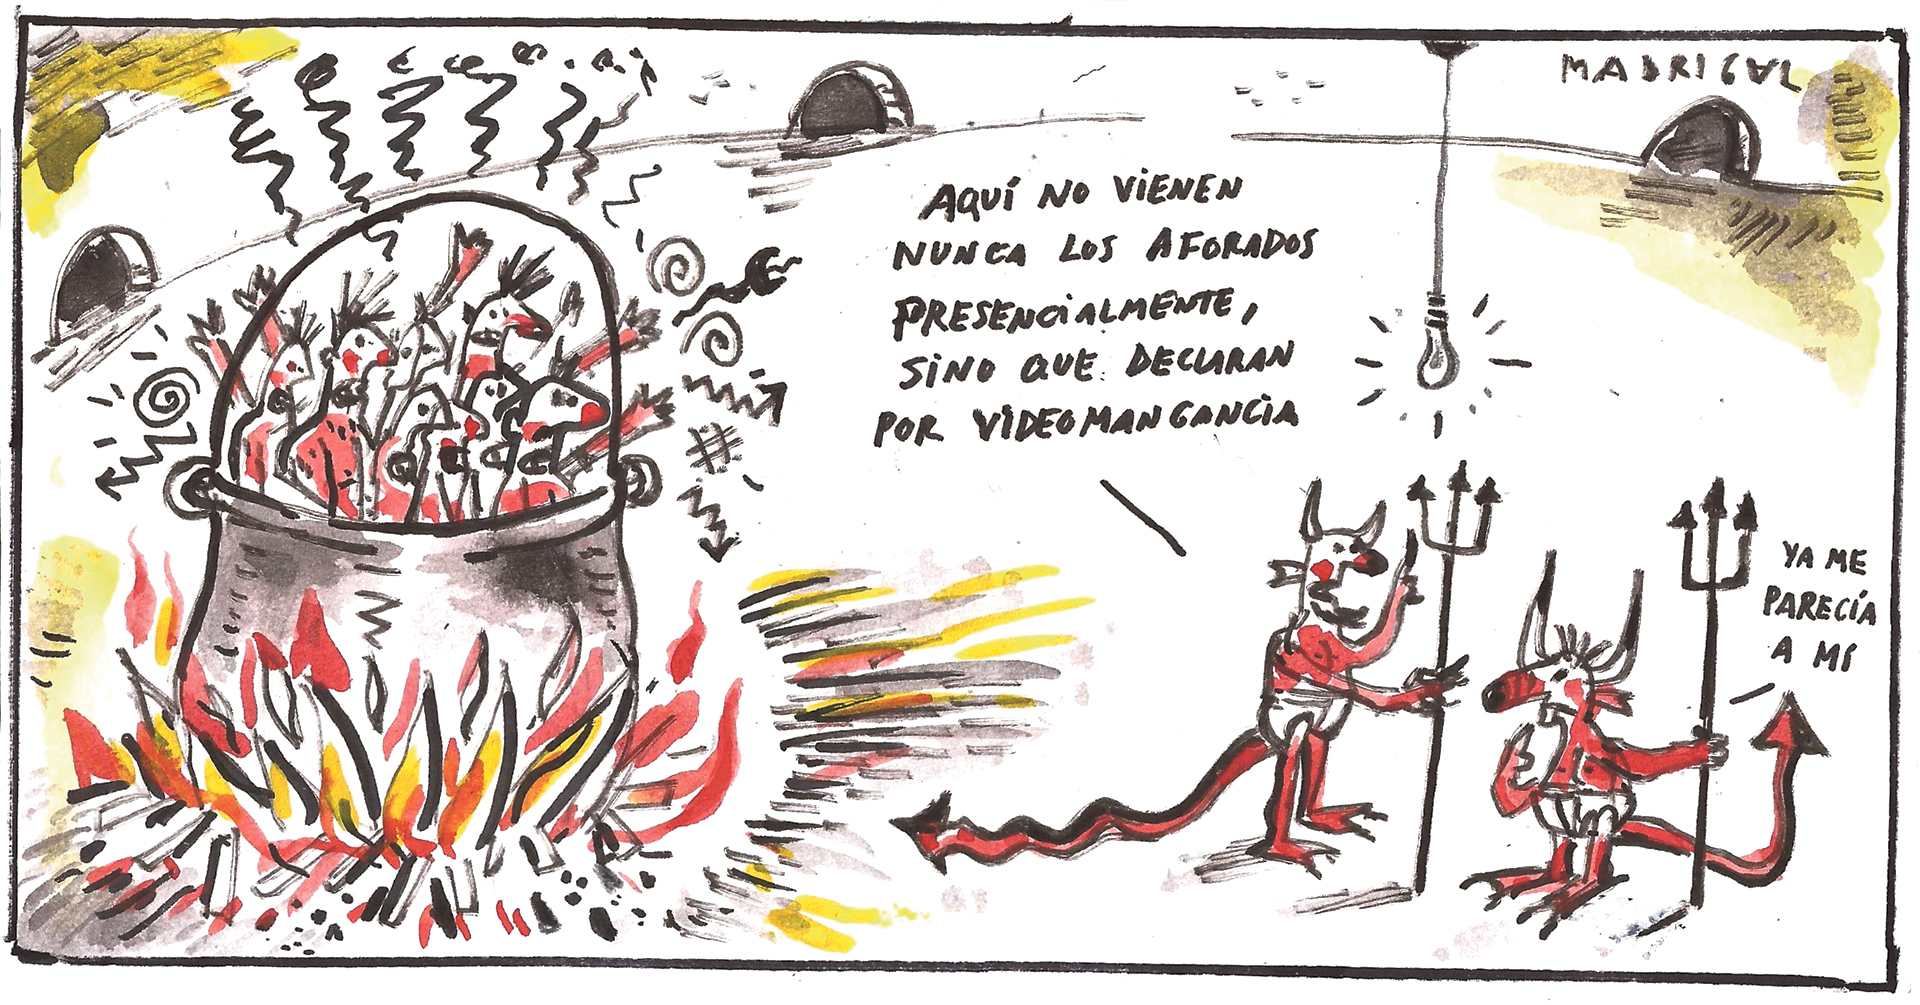 MADRIGAL
AQUÍ NO VIENEN
NUNCA LOS AFORADOS
PRESENCIALMENTE,
SINO QUE DECLARAN
POR VIDEOMANGANCIA
YA ME
PARECÍA
A MÍ